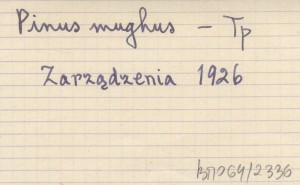 Pinus mughus - Tp
Zarządzenia 1926
ВП264/2336